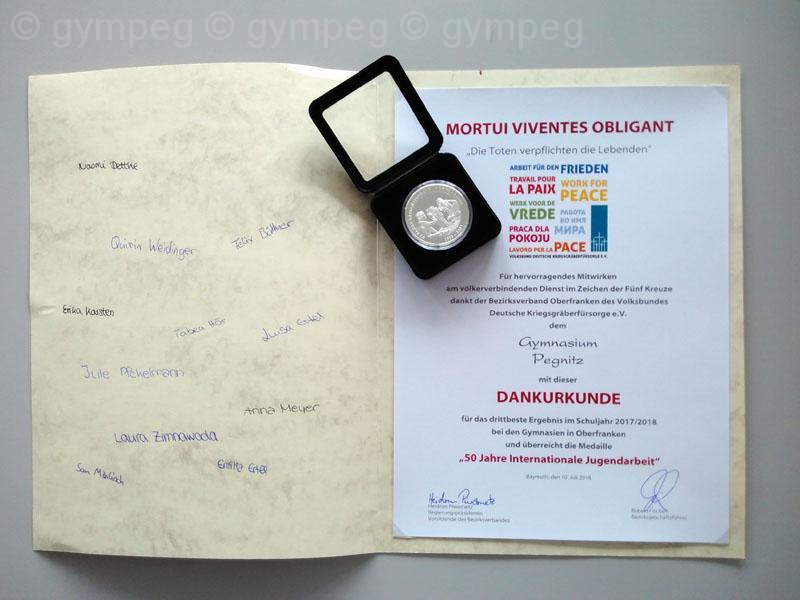 © gympeg © gympeg © gympeg
Naomi Dettke
Quirin Weidinger
Felix Büttner
Erika Karsten
Tabea Hör
Luisa Ertel
Jule
Anna Meyer
Laura Zimnawada
Emilia Ertel
MORTUI VIVENTES OBLIGANT
„Die Toten verpflichten die Lebenden“
ARBEIT FÜR DEN FRIEDEN
TRAVAIL POUR LA PAIX
WORK FOR PEACE
WERK VOOR DE VREDE
РАБОТА ВО ИМЯ МИРА
PRACA DLA POKOJU
LAVORO PER LA PACE
VOLKSBUND DEUTSCHE KRIEGSGRÄBERFÜRSORGE E.V.
Für hervorragendes Mitwirken
am völkerverbindenden Dienst im Zeichen der Fünf Kreuze
dankt der Bezirksverband Oberfranken des Volksbundes
Deutsche Kriegsgräberfürsorge e.V.
dem
Gymnasium
Pegnitz
mit dieser
DANKURKUNDE
für das drittbeste Ergebnis im Schuljahr 2017/2018
bei den Gymnasien in Oberfranken
und überreicht die Medaille
„50 Jahre Internationale Jugendarbeit“
Bayreuth, den 10. Juli 2018
Heidrun Piwernetz
Heidrun Piwernetz
Regierungspräsidentin
Vorsitzende des Bezirksverbandes
Robert Fischer
Bezirksgeschäftsführer